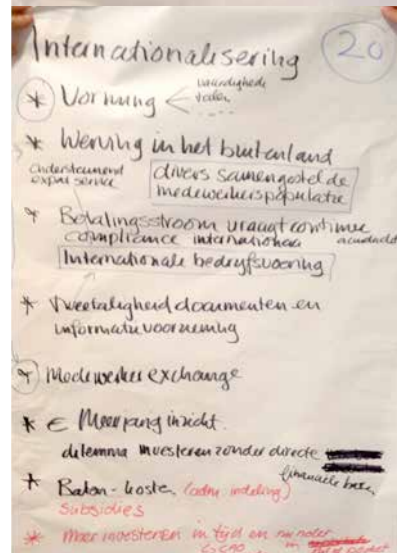 Internationalisering
20
* Vorming < vaardigheden
talen
....
* Werving in het buitenland
ondersteunend
expat service
divers samengestelde
medewerkerspopulatie
* Betalingsstroom vraagt continue
compliance internationaal
Internationale bedrijfsvoering
* Tweetaligheid documenten en
informatievoorziening
* Medewerker exchange
* € Meerjarig inzicht.
dilemma investeren zonder directe
financiele
* Baten - kosten (adm. indeling)
subsidies
* Meer investeren in tijd en